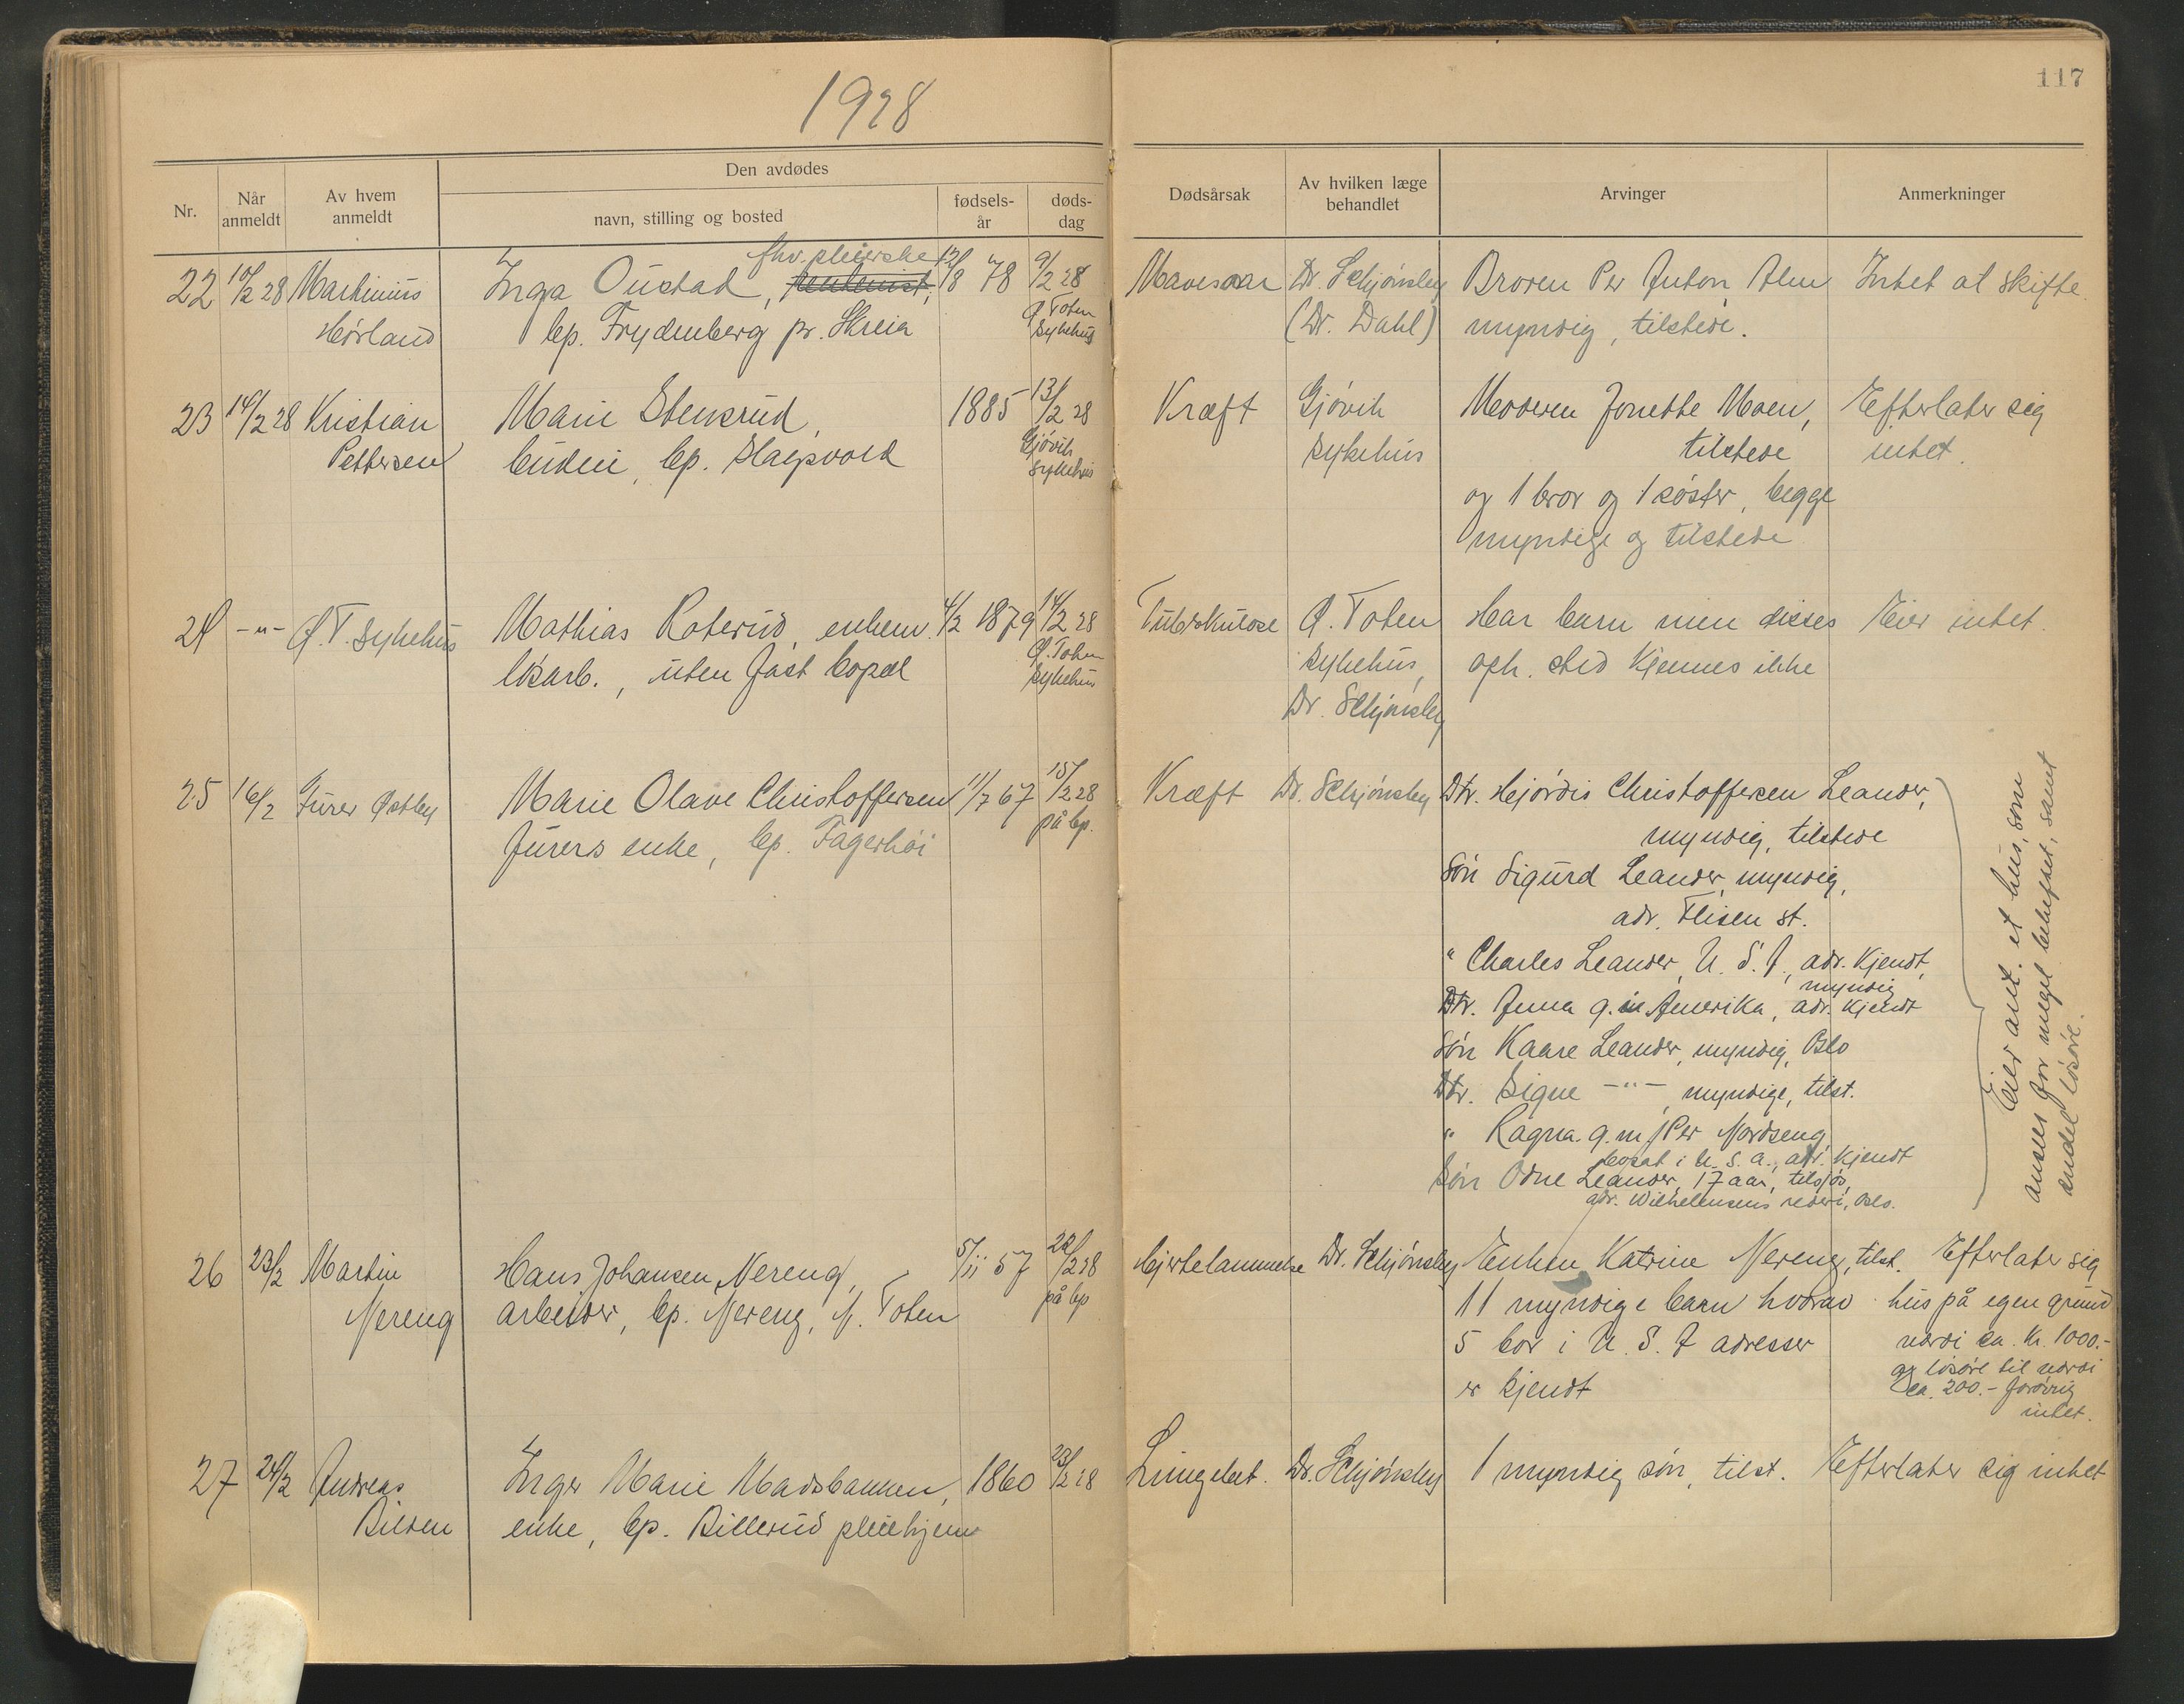 1928
117
Den avdødes
Nr.
Når anmeldt
Av hvem anmeldt
navn, stilling og bosted
fødsels- år
døds- dag
Dødsårsak
Av hvilken læge behandlet
Arvinger
Anmerkninger
22 10/2 28 Martinius Inga Oustad, fhv. pleierske 12/8 78 9/2 28 Mavesaar Dr. Schjønsby Broren Per Anton Alm Intet at skifte.
Hörland bp. Frydenberg pr. Skreia Ø. Toten sykehus (Dr. Dahl) myndig, tilstede.
23 14/2 28 Kristian Marie Stensrud, 1885 13/2 28 Kræft Gjövik Moderen Jonette Moen, Efterlater sig
Pettersen budeie, bp. Slagsvold Gjövik sykehus sykehus tilstede intet.
og 1 bror og 1 söster, begge
myndige og tilstede
24 -"- Ø. T. sykehus Mathias Roterud, enkem. 4/2 1879 14/2 28 Tuberkulose Ø. Toten Har barn men disses Eier intet.
lösarb., uten fast bopæl Ø. Toten sykehus sykehus, oph. sted kjennes ikke
Dr. Schjønsby
25 16/2 Furer Østby Marie Olave Christoffersen 11/7 67 15/2 28 Kræft Dr. Schjønsby Dtr. Hjördis Christoffersen Leander,
furers enke, bp. Fagerhöi på bp. myndig, tilstede
Sön Sigurd Leander, myndig,
adr. Flisen st.
" Charles Leander, U. S. A., adr. kjendt,
myndig
Dtr. Anna g. in Amerika, adr. kjendt
Sön Kaare Leander, myndig, Oslo
Dtr. Signe -"-, myndige, tilst.
" Ragna g. m/ Per Nordseng,
bosat i U. S. A., adr. kjendt
Sön Odne Leander, 17 aar, tilsjös,
adr. Wilhelmsens rederi, Oslo.
Eier ant. et hus, som
anses for meget beheftet, samt
endel lösöre.
26 23/2 Martin Hans Johansen Nereng, 5/11 57 22/2 28 Hjertelammelse Dr. Schjønsby Enken Katrine Nereng, tilst. Efterlater sig
Nereng arbeider, bp. Nereng, N. Toten på bp 11 myndige barn hvorav hus på egen grund
5 bor i U. S. A adresser værdi ca. Kr. 1000.-
er kjendt og lösöre til værdi
ca. 200.- forövrig
intet.
27 24/2 Andreas Inger Marie Madsbakken, 1860 23/2 28 Lungebet. Dr. Schjønsby 1 myndig sön, tilst. Efterlater sig intet
Bilden enke, bp. Billerud pleiehjem